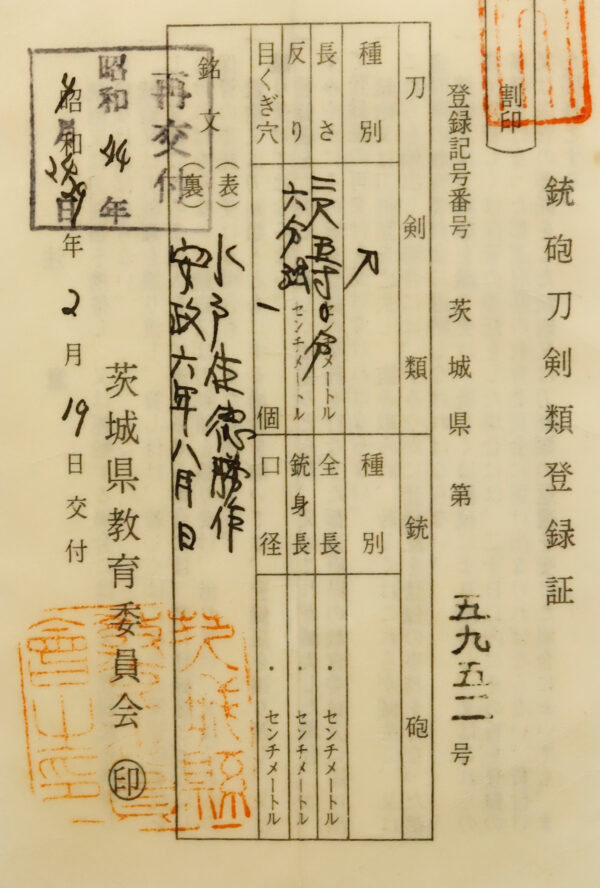 銃砲刀剣類登録証
割印
登録記号番号 茨城県第五九五二号
刀剣類 銃砲
種別 刀 種別
長さ 二尺五寸 分 センチメートル 全長 ・センチメートル
反り 六分 センチメートル 銃身長 ・センチメートル
目くぎ穴 一個 口径 ・センチメートル
銘文 (表) 水戸住徳勝作
(裏) 安政六年八月日
再交付
昭和44年
月 日
茨城県教育委員会 印
昭和29年2月19日交付
茨城縣
教育委員
會之印